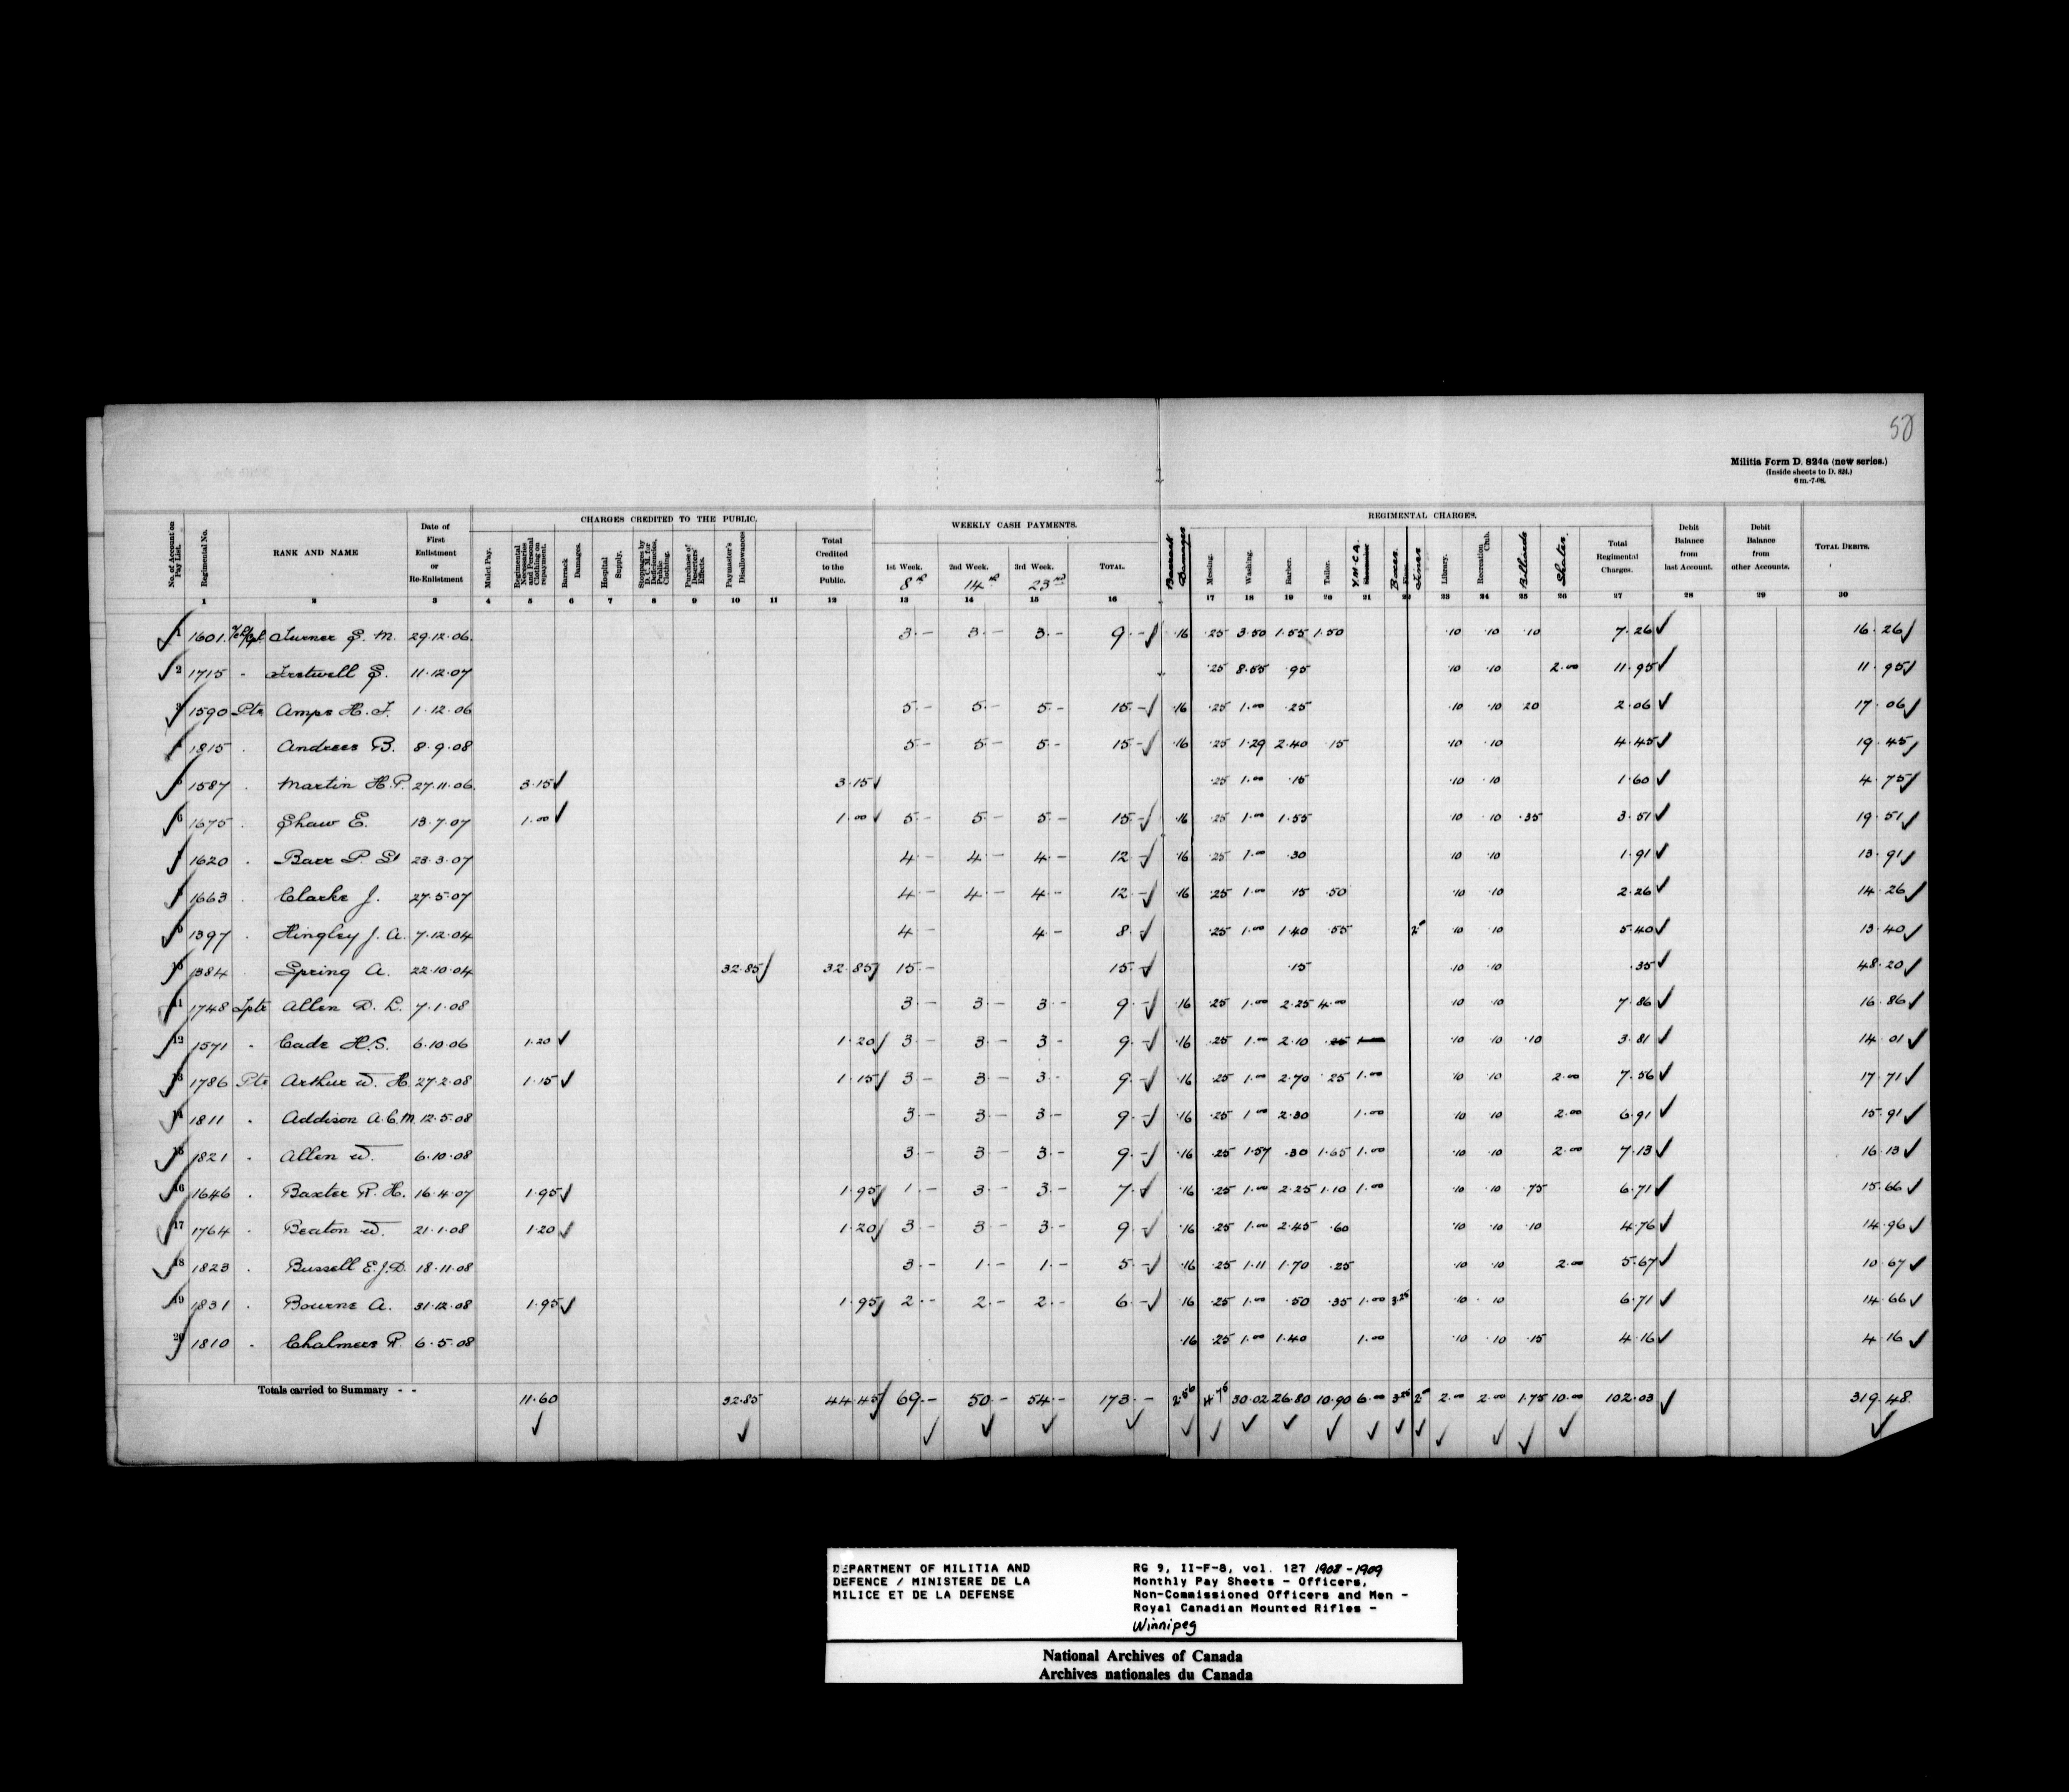 50
Militia Form D. 824a (new series.)
(Inside sheets to D. 824.)
6 m.-7-08.
CHARGES CREDITED TO THE PUBLIC. WEEKLY CASH PAYMENTS. REGIMENTAL CHARGES.
No. of Account on Pay List. Regimental No. RANK AND NAME Date of First Enlistment or Re-Enlistment Mulct Pay. Regimental Necessaries and Personal Clothing on repayment. Barrack Damages. Hospital Supply. Stoppages by D. C. M. for Deficiencies, Public Clothing. Purchase of Deserters' Effects. Paymaster's Disallowances Total Credited to the Public. 1st Week. 8th 2nd Week. 14th 3rd Week. 23rd TOTAL. Barrack Damages Messing. Washing. Barber. Tailor. Y.M.C.A. Fines Library. Recreation Club. Billiards Skates. Total Regimental Charges. Debit Balance from last Account. Debit Balance from other Accounts. TOTAL DEBITS.
1 2 3 4 5 6 7 8 9 10 11 12 13 14 15 16 17 18 19 20 21 22 23 24 25 26 27 28 29 30
1 1601 Turner G. M. 29.12.06 3.- 3.- 3.- 9.- .16 .25 3.50 1.55 1.50 .10 .10 .10 7.26 16.26
2 1715 " Fretwell G. 11.12.07 .25 8.55 .95 .10 .10 2.00 11.95 11.95
3 1590 Pte Amps H. J. 1.12.06 5.- 5.- 5.- 15.- .16 .25 1.00 .25 .10 .10 .20 2.06 17.06
4 1815 " Andrees B. 8.9.08 5.- 5.- 5.- 15.- .16 .25 1.29 2.40 .15 .10 .10 4.45 19.45
5 1587 " Martin H. P. 27.11.06 3.15 3.15 .25 1.00 .15 .10 .10 1.60 4.75
6 1675 " Shaw E. 13.7.07 1.00 1.00 5.- 5.- 5.- 15.- .16 .25 1.00 1.55 .10 .10 .35 3.51 19.51
7 1620 " Barr P. 23.3.07 4.- 4.- 4.- 12.- .16 .25 1.00 .30 .10 .10 1.91 13.91
8 1663 " Clarke J. 27.5.07 4.- 4.- 4.- 12.- .16 .25 1.00 .15 .50 .10 .10 2.26 14.26
9 1397 " Hingley J. A. 7.12.04 4.- 4.- 8.- .25 1.00 1.40 .55 2.00 .10 .10 5.40 13.40
10 1384 Spring A. 22.10.04 32.85 32.85 15.- 15.- .15 .10 .10 .35 48.20
11 1748 Allen D. L. 7.1.08 3.- 3.- 3.- 9.- .16 .25 1.00 2.25 4.00 .10 .10 7.86 16.86
12 1571 " Cade H.S. 6.10.06 1.20 1.20 3.- 3.- 3.- 9.- .16 .25 1.00 2.10 .10 .10 .10 3.81 14.01
13 1786 Pte Arthur W. H. 27.2.08 1.15 1.15 3.- 3.- 3.- 9.- .16 .25 1.00 2.70 .25 1.00 .10 .10 2.00 7.56 17.71
14 1811 " Addison A. C. M. 12.5.08 3.- 3.- 3.- 9.- .16 .25 1.00 2.30 1.00 .10 .10 2.00 6.91 15.91
15 1821 " Allen W. 6.10.08 3.- 3.- 3.- 9.- .16 .25 1.57 .30 1.65 1.00 .10 .10 2.00 7.13 16.13
16 1646 " Baxter R. H. 16.4.07 1.95 1.95 1.- 3.- 3.- 7.- .16 .25 1.00 2.25 1.10 1.00 .10 .10 .75 6.71 15.66
17 1764 " Beaton W. 21.1.08 1.20 1.20 3.- 3.- 3.- 9.- .16 .25 1.00 2.45 .60 .10 .10 .10 4.76 14.96
18 1823 " Bussell E. J. D. 18.11.08 3.- 1.- 1.- 5.- .16 .25 1.11 1.70 .25 .10 .10 2.00 5.67 10.67
19 1831 " Bourne A. 31.12.08 1.95 1.95 2.- 2.- 2.- 6.- .16 .25 1.00 .50 .35 1.00 3.25 .10 .10 6.71 14.66
20 1810 " Chalmers R. 6.5.08 .16 .25 1.00 1.40 1.00 .10 .10 .15 4.16 4.16
Totals carried to Summary - - 11.60 32.85 44.45 69.- 50.- 54.- 173.- 2.56 4.75 30.02 26.80 10.90 6.00 3.25 2.00 2.00 2.00 1.75 10.00 102.03 319.48
DEPARTMENT OF MILITIA AND
DEFENCE / MINISTERE DE LA
MILICE ET DE LA DEFENSE
RG 9, II-F-8, vol. 127 1908-1909
Monthly Pay Sheets - Officers,
Non-Commissioned Officers and Men -
Royal Canadian Mounted Rifles -
Winnipeg
National Archives of Canada
Archives nationales du Canada